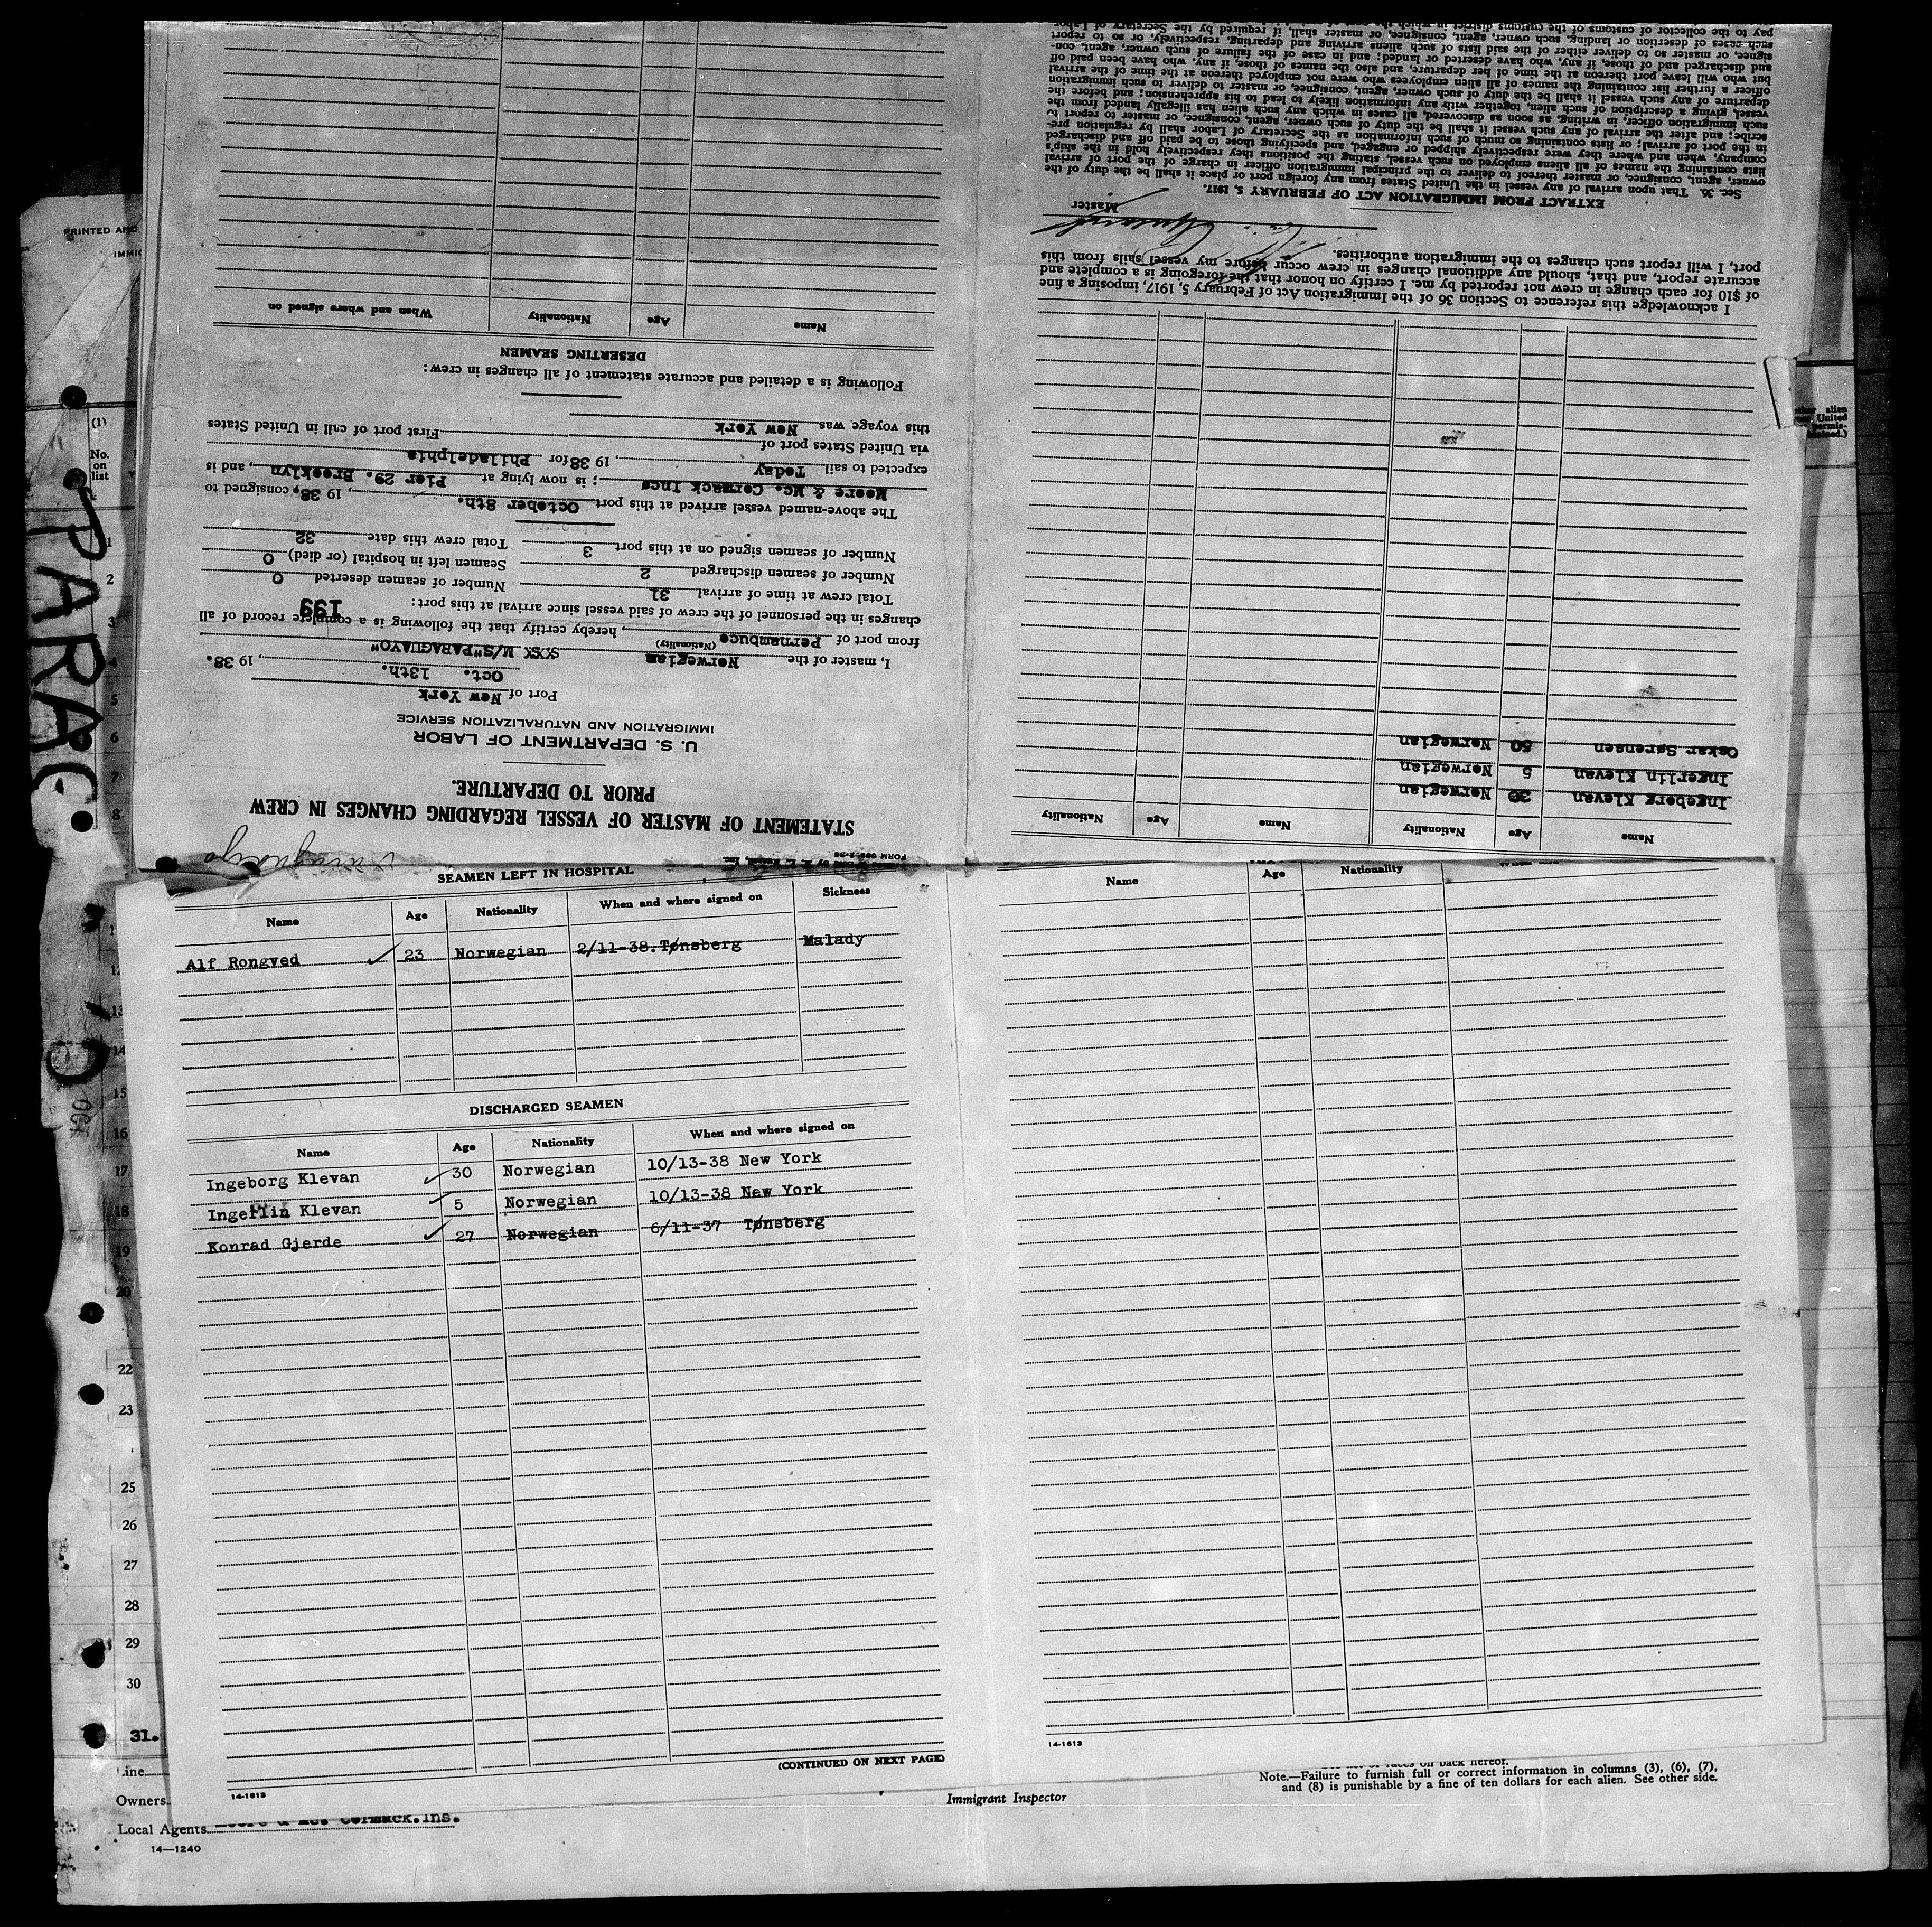 PRINTED AND
IMMIG
(1)
No.
on
list
PARAG
STATEMENT OF MASTER OF VESSEL REGARDING CHANGES IN CREW
PRIOR TO DEPARTURE.
U. S. DEPARTMENT OF LABOR
IMMIGRATION AND NATURALIZATION SERVICE
Port of New York
Oct. 13th. , 1938.
I, master of the Norwegian M/S"PARAGUAYO"
(Nationality)
from port of Pernambuco, hereby certify that the following is a complete record of all
changes in the personnel of the crew of said vessel since arrival at this port: 199
Total crew at time of arrival 31 Number of seamen deserted 0
Number of seamen discharged 2 Seamen left in hospital (or died) 0
Number of seamen signed on at this port 3 Total crew this date 32
The above-named vessel arrived at this port October 8th. , 1938, consigned to
Moore & Mc. Cormack Incs ; is now lying at Pier 29. Brooklyn, and is
expected to sail Today , 1938 for Philadelphia
via United States port of First port of call in United States
this voyage was New York
Following is a detailed and accurate statement of all changes in crew:
DESERTING SEAMEN
Name Age Nationality When and where signed on
Name Age Nationality Name Age Nationality
Ingeborg Klevan 30 Norwegian
Ingerlin Klevan 5 Norwegian
Oskar Sørensen 50 Norwegian
I acknowledge this reference to Section 36 of the Immigration Act of February 5, 1917, imposing a fine
of $10 for each change in crew not reported by me. I certify on honor that the foregoing is a complete and
accurate report, and that, should any additional changes in crew occur before my vessel sails from this
port, I will report such changes to the immigration authorities.
Master
EXTRACT FROM IMMIGRATION ACT OF FEBRUARY 5, 1917.
Sec. 36. That upon arrival of any vessel in the United States from any foreign port or place it shall be the duty of the
owner, agent, consignee, or master thereof to deliver to the principal immigration officer in charge of the port of arrival
lists containing the names of all aliens employed on such vessel, stating the positions they respectively hold in the ship's
company, when and where they were respectively shipped or engaged, and specifying those to be paid off and discharged
in the port of arrival; or lists containing so much of such information as the Secretary of Labor shall by regulation pre-
scribe; and after the arrival of any such vessel it shall be the duty of such owner, agent, consignee, or master to report to
such immigration officer, in writing, as soon as discovered, all cases in which any such alien has illegally landed from the
vessel, giving a description of such alien, together with any information likely to lead to his apprehension; and before the
departure of any such vessel it shall be the duty of such owner, agent, consignee, or master to deliver to such immigration
officer a further list containing the names of all alien employees who were not employed thereon at the time of the arrival
but who will leave port thereon at the time of her departure, and also the names of those, if any, who have been paid off
and discharged and of those, if any, who have deserted or landed; and in case of the failure of such owner, agent, con-
signee, or master so to deliver either of the said lists of such aliens arriving and departing, respectively, or so to report
such cases of desertion or landing, such owner, agent, consignee, or master shall, if required by the Secretary of Labor
pay to the collector of customs of the customs district in which the
SEAMEN LEFT IN HOSPITAL
Name Age Nationality When and where signed on Sickness
Alf Rongved 23 Norwegian 2/11-38.Tønsberg Malady
DISCHARGED SEAMEN
Name Age Nationality When and where signed on
Ingeborg Klevan 30 Norwegian 10/13-38 New York
Ingerlin Klevan 5 Norwegian 10/13-38 New York
Konrad Gjerde 27 Norwegian 6/11-37 Tønsberg
(CONTINUED ON NEXT PAGE)
14-1613
Name Age Nationality
14-1613
1
2
3
4
5
6
7
8
12
13
14
15
16
17
18
19
20
22
23
25
26
27
28
29
30
31.
Line
Owners
Local Agents Moore & Mc. Cormack.Ins.
14—1240
Immigrant Inspector
Note.—Failure to furnish full or correct information in columns (3), (6), (7),
and (8) is punishable by a fine of ten dollars for each alien. See other side.